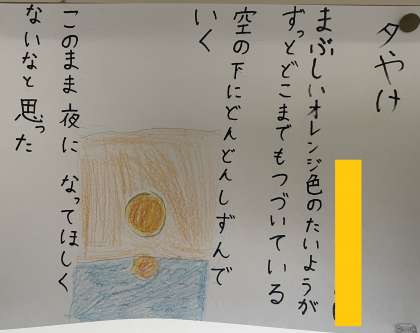 夕やけ
まぶしいオレンジ色のたいようが
ずっとどこまでもつづいている
空の下にどんどんしずんで
いく
このまま夜になってほしく
ないなと思った